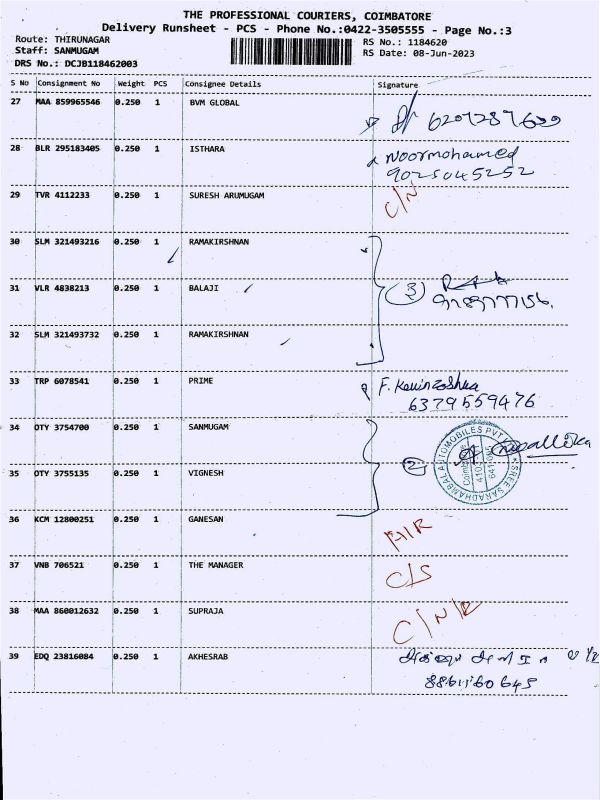 THE PROFESSIONAL COURIERS, COIMBATORE
Delivery Runsheet - PCS - Phone No.:0422-3505555 - Page No.:3
Route: THIRUNAGAR
RS No.: 1184620
Staff: SANMUGAM
RS Date: 08-Jun-2023
DRS No.: DCJB118462003
S No Consignment No Weight PCS Consignee Details Signature
27 MAA 859965546 0.250 1 BVM GLOBAL
28 BLR 295183405 0.250 1 ISTHARA Noormohamed
9025045252
29 TVR 4112233 0.250 1 SURESH ARUMUGAM C/N
30 SLM 321493216 0.250 1 RAMAKIRSHNAN
31 VLR 4838213 0.250 1 BALAJI 3
32 SLM 321493732 0.250 1 RAMAKIRSHNAN
33 TRP 6078541 0.250 1 PRIME
6379559476
34 OTY 3754700 0.250 1 SANMUGAM
35 OTY 3755135 0.250 1 VIGNESH 2
SREE SARADHAMBAL AUTOMOBILES PVT
Coimbatore
36 KCM 12800251 0.250 1 GANESAN
37 VNB 706521 0.250 1 THE MANAGER C/S
38 MAA 860012632 0.250 1 SUPRAJA
39 EDQ 23816084 0.250 1 AKHESRAB